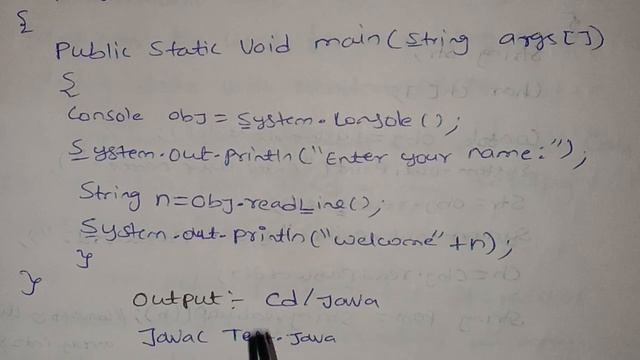 {
public static void main(String args[])
{
Console obj = System.console();
System.out.println("Enter your name:");
String n=obj.readLine();
System.out.println("welcome"+n);
}
}
Output:- cd/Java
Javac .Java